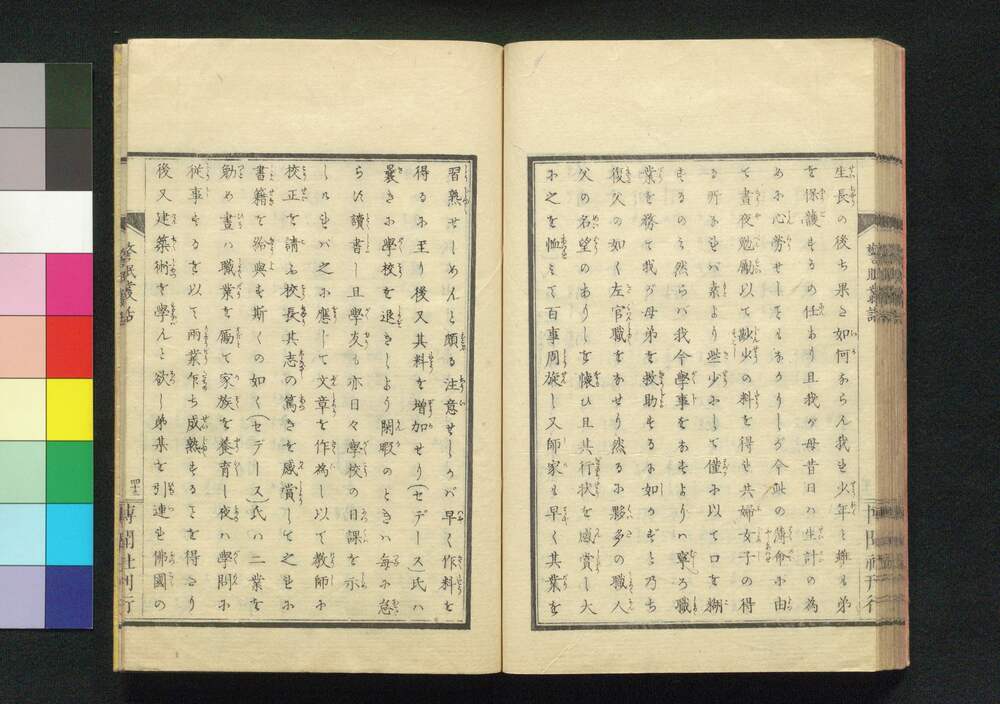 生長の後ち果さ如何ならん我も少年と雖も弟
を保護するの任あり且我が母昔日ハ生計の為
めに心労せしこともなかりしが今此の薄命に由
て晝夜勉勵以て尠少の料を得も共婦女子の得
る所なれバ素より些少にして僅に以て口を糊
するのミ然らバ我今學事をなすよりハ寧ろ職
業を務て我が母弟を救助するに如かずと乃ち
復父の如く左官職をなせり然るに夥多の職人
父の名望のありしを懐ひ且其行状を感賞し大
に之を恤ミて百事周旋し又師家も早く其業を
習熟せしめんと頗る注意せしかバ早く作料を
得るに至り後又其料を増加せり(セデース)氏ハ
曩きに學校を退きしより閑暇のときハ毎に怠
らず讀書し且學友も亦日々學校の日課を示
しけれバ之に應して文章を作為し以て教師に
校正を請ふ校長其志の篤きを感賞して之れに
書籍を貸與す斯くの如く(セデース)氏ハ二業を
勤め晝ハ職業を勵て家族を養育し夜ハ學問に
従事するを以て両業乍ち成熟することを得たり
後又建築術を學んと欲し弟某を引連れ佛國の
警眠叢話
四十三
博聞社刊行